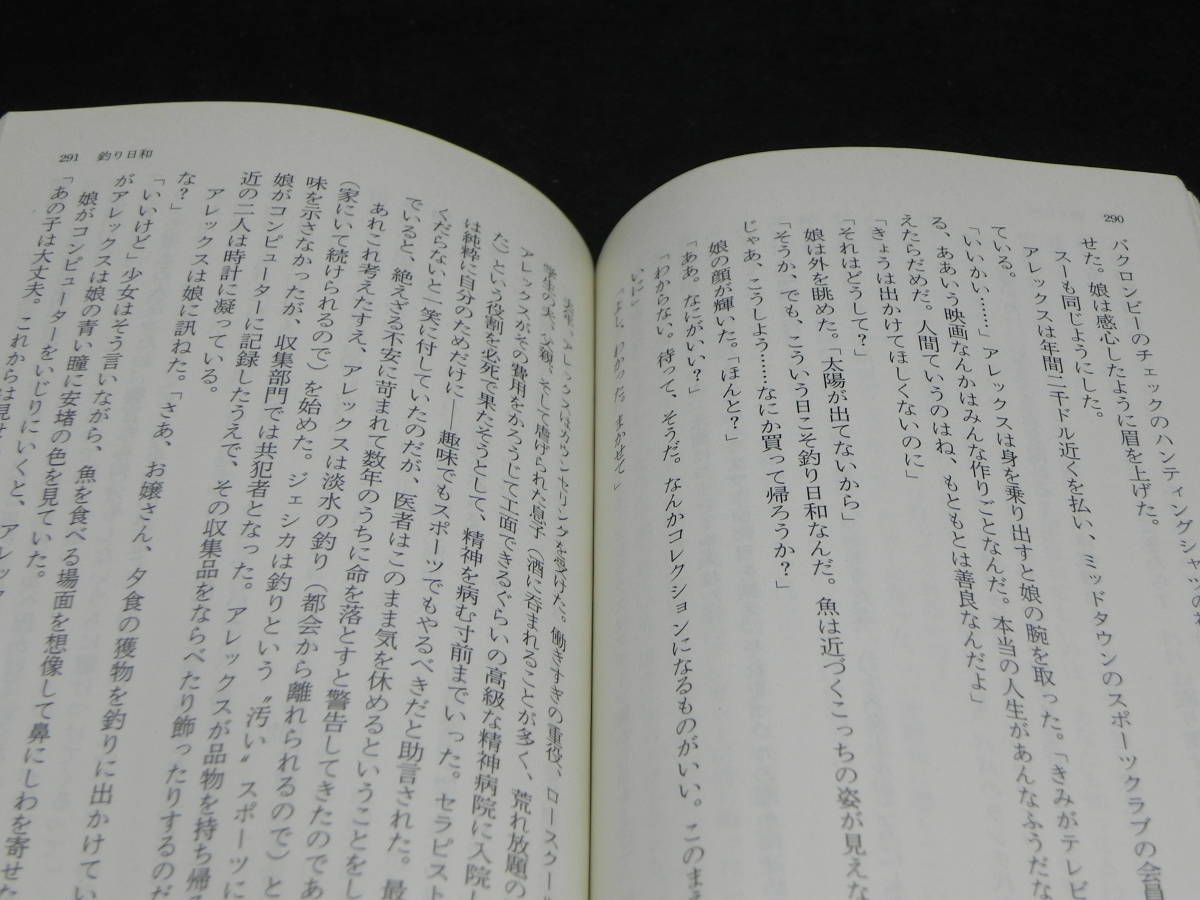 290
バクロンビーのチェックのハンティングシャツの
せた。娘は感心したように眉を上げた。
スーも同じようにした。
アレックスは年間二千ドル近くを払い、ミッドタウンのスポーツクラブの会員
ている。
アレックスは身を乗り出すと娘の腕を取った。「きみがテレビ
「いいかい……」アレックスは身を乗り出すと娘の腕を取った。「きみがテレビ
る、ああいう映画なんかはみんな作りごとなんだ。本当の人生があんなふうだな
えたらだめだ。人間ていうのはね、もともとは善良なんだよ」
「きょうは出かけてほしくないのに」
「それはどうして？」
娘は外を眺めた。「太陽が出てないから」
「そうか、でも、こういう日こそ釣り日和なんだ。魚は近づくこっちの姿が見えな
じゃあ、こうしよう……なにか買って帰ろうか？」
娘の顔が輝いた。「ほんと？」
「ああ。なにがいい？」
「わからない。待って、そうだ。なんかコレクションになるものがいい。このまえ
いに」
「よし、わかった。まかせて」
291 釣り日和
アレックスはカウンセリングを受けた。働きすぎの重役、ロースクール
学生の夫、父親、そして虐げられた息子（酒に呑まれることが多く、荒れ放題の
た）という役割を必死で果たそうとして、精神を病む寸前までいった。セラピスト
アレックスがその費用をかろうじて工面できるぐらいの高級な精神病院に入院し
は純粋に自分のためだけに――趣味でもスポーツでもやるべきだと助言された。最
くだらないと一笑に付していたのだが、医者はこのまま気を休めるということをし
でいると、絶えざる不安に苛まれて数年のうちに命を落とすと警告してきたのであ
あれこれ考えたすえ、アレックスは淡水の釣り（都会から離れられるので）と
（家にいて続けられるので）を始めた。ジェシカは釣りという〝汚い〟スポーツに
味を示さなかったが、収集部門では共犯者となった。アレックスが品物を持ち帰
娘がコンピューターに記録したうえで、その収集品をならべたり飾ったりするのだ
近の二人は時計に凝っている。
アレックスは娘に訊ねた。「さあ、お嬢さん、夕食の獲物を釣りに出かけてい
な？」
「いいけど」少女はそう言いながら、魚を食べる場面を想像して鼻にしわを寄せた
がアレックスは娘の青い瞳に安堵の色を見ていた。
娘がコンピューターをいじりにいくと、アレック
「あの子は大丈夫。これからは見せ